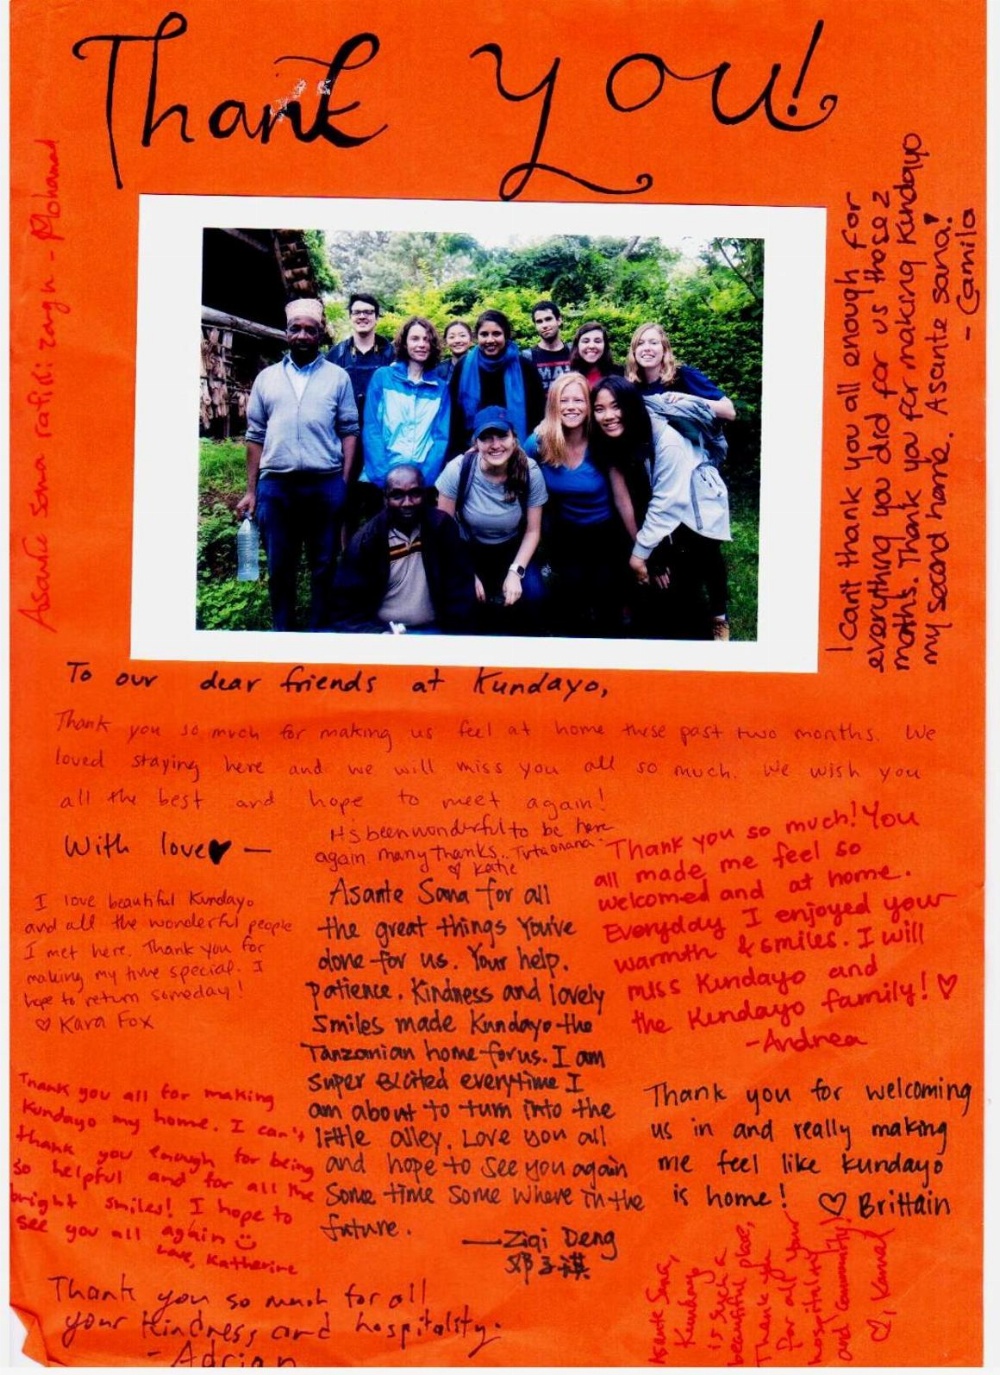 Thank You!
Asante sana rafiki zangu - Mohamad
I cant thank you all enough for
everything you did for us those 2
moths. Thank you for making Kundayo
my second home. Asante sana!
- Camila
To our dear friends at Kundayo,
Thank you so much for making us feel at home these past two months. We
loved staying here and we will miss you all so much. We wish you
all the best and hope to meet again!
With love —
It's been wonderful to be here
again many thanks.. Tutaonana
♡ Katie
I love beautiful Kundayo
and all the wonderful people
I met here. Thank you for
making my time special. I
hope to return someday!
♡ Kara Fox
Asante Sana for all
the great things You've
done for us. Your help,
patience, Kindness and lovely
Smiles made Kundayo the
Tanzanian home for us. I am
super excited everytime I
am about to turn into the
little alley. Love you all
and hope to see you again
Some time some where in the
future.
—Ziqi Deng
邓子祺
Thank you so much! You
all made me feel so
welcomed and at home.
Everyday I enjoyed your
warmth & smiles. I will
miss Kundayo and
the Kundayo family! ♡
-Andrea
Thank you all for making
Kundayo my home. I can't
thank you enough for being
so helpful and for all the
bright smiles! I hope to
see you all again
Love, Katherine
Thank you for welcoming
us in and really making
me feel like kundayo
is home! ♡ Brittain
Thank you so much for all
your kindness and hospitality.
- Adrian
Asante Sana,
Kundayo
is such a
beautiful place,
Thank you
for all your
hospitality
and community!
♡,